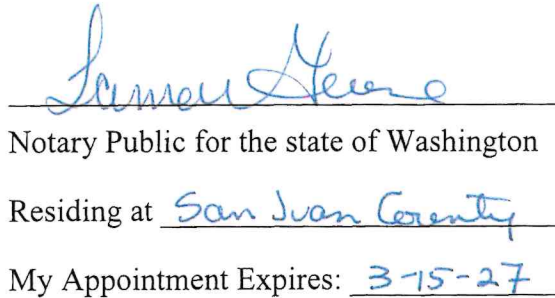 Notary Public for the state of Washington
Residing at San Juan County
My Appointment Expires: 3-15-27